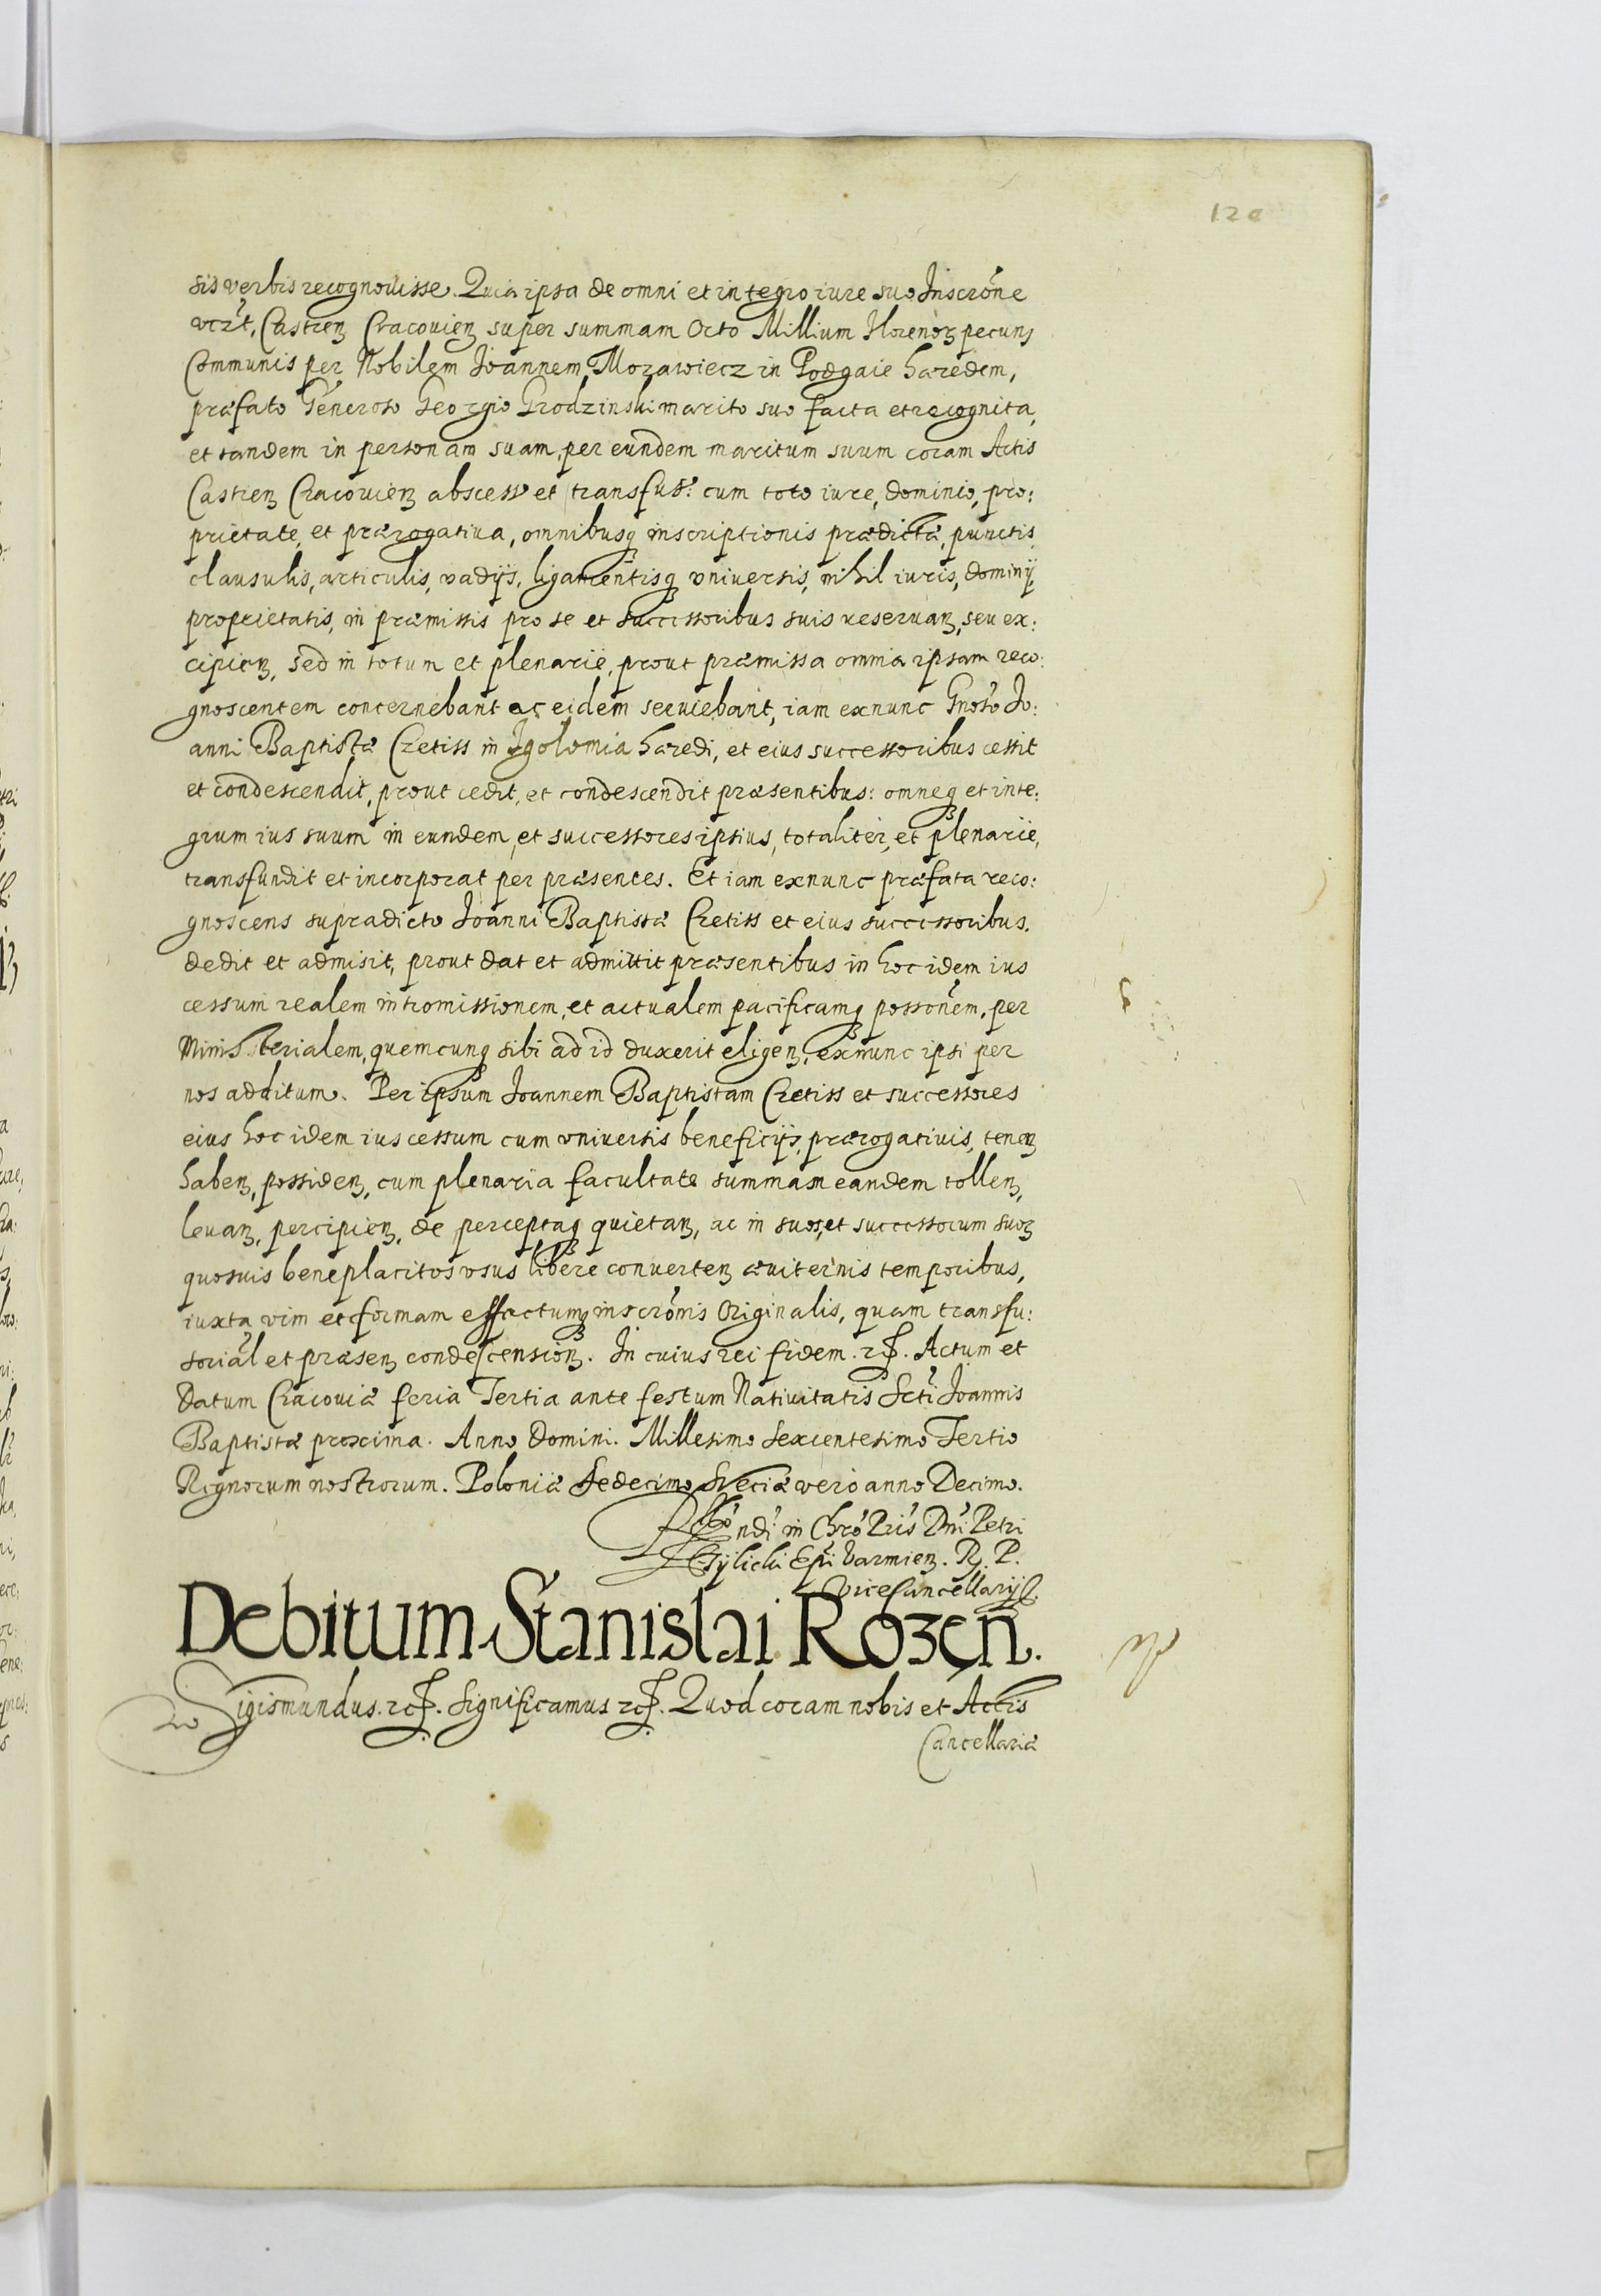 120
sis verbis recognovisse. Quia ipsa de omni et integro iure suo Inscrõne
vczt, Castreñ Cracovieñ super summam Octo Millium Florenoꝝ pecuny
Communis per Nobilem Ioannem Morawiecz in Podgaie hæredem,
præfato Generoso Georgio Grodzinski marito suo facta et recognita,
et tandem in personam suam, per eundem maritum suum coram Actis
Castreñ Cracovieñ abscesso et transfuso: cum toto iure, dominio, pro:
prietate, et prærogativa, omnibusq inscriptionis prædictæ, punctis
clausulis, articulis, vadijs, ligamentisq vniversis, nihil iuris, dominij
proprietatis, in præmissis pro se et successoribus suis reservañ, seu ex:
cipieñ, sed in totum et plenarie, prout præmissa omnia ipsam reco:
gnoscentem concernebant ac eidem serviebant, iam exnunc Gnoso Jo:
anni Baptistæ Czetiss in Igolomia hæredi, et eius successoribus cessit
et condescendit, prout cedit, et condescendit præsentibus: omneq et inte:
grum ius suum in eundem, et successores ipsius, totaliter, et plenarie,
transfundit et incorporat per præsentes. Et iam exnunc præfata reco:
gnoscens supradicto Ioanni Baptistæ Czetiss et eius successoribus.
dedit et admisit, prout dat et admittit præsentibus in hoc idem ius
cessum realem intromissionem, et actualem pacificamq possonem, per
Ministerialem, quemcunq sibi ad id duxerit eligeñ, exnunc ipsi per
nos additum. Per ipsum Ioannem Baptistam Czetiss et successores
eius hoc idem ius cessum cum vniversis beneficijs, prærogativis, teneñ
habeñ, possideñ, cum plenaria facultate summam eandem tolleñ,
levañ, percipieñ, de perceptaq quietañ, ac in suos, et successorum suoꝝ
quosvis beneplacitos vsus libere converteñ æviternis temporibus,
iuxta vim et formam effectumq inscrõnis Originalis, quam transfu:
sorial et præseñ condescensioñ. In cuius rei fidem. rc. Actum et
Datum Cracoviæ feria Tertia ante festum Nativitatis Scti Ioannis
Baptistæ proxima. Anno Domini. Millesimo Sexcentesimo Tertio
Regnorum nostrorum. Poloniæ Sedecimo Sveciæ vero anno Decimo.
Rndi in Chro Pris Dni Petri
Tylicki Epi Varmieñ. R. P.
Vicecancellarij
Debitum Stanislai Rozen.
Sigismundus. rc. Significamus rc. Quod coram nobis et Actis
Cancellariæ